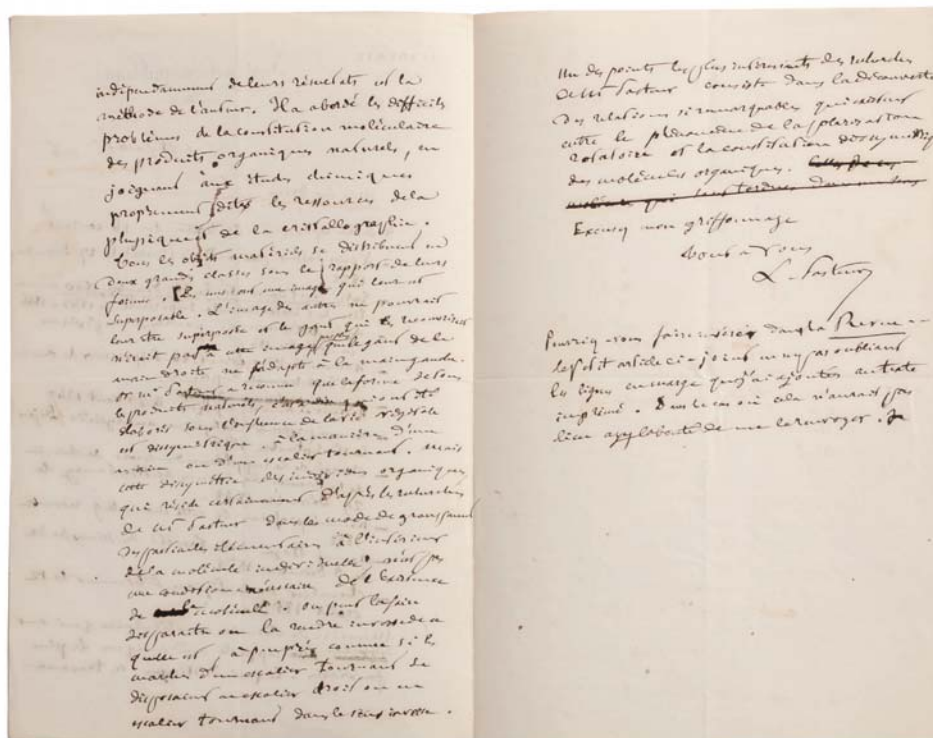 indépendamment de leurs résultats est la
méthode de l'auteur. Il a abordé les difficiles
problèmes de la constitution moléculaire
des produits organiques naturels, en
joignant aux études chimiques
proprement dites les ressources de la
physique et de la cristallographie.
Tous les objets matériels se distribuent en
deux grandes classes sous le rapport de leurs
formes. Les uns ont une image qui leur est
superposable. L'image des autres ne pourrait
leur être superposée et le gant qui les recouvrirait
n'irait pas à cette image, puisque le gant de la
main droite ne s'adapte à la main gauche.
or M. Pasteur a reconnu que la forme de tous
les produits naturels, qui ont été
élaborés sous l'influence de la vie végétale
est dissymétrique, à la manière d'une
main ou d'un escalier tournant. Mais
cette dissymétrie des individus organiques
qui réside certainement d'après les recherches
de M. Pasteur dans le mode de groupement
des particules élémentaires à l'intérieur
de la molécule individuelle, n'est pas
une condition nécessaire de l'existence
de la molécule. on peut la faire
disparaître ou la rendre inverse de ce
qu'elle est à peu près comme si les
marches d'un escalier tournant se
disposaient en escalier droit ou en
escalier tournant dans le sens inverse.
Un des points les plus intéressants des recherches
de M. Pasteur consiste dans la découverte
des relations si remarquables qui existent
entre le phénomène de la polarisation
rotatoire et la constitution dissymétrique
des molécules organiques.
Excusez mon griffonnage
Tout à vous
L. Pasteur
Pourriez-vous faire insérer dans la Revue
le petit article ci-joint en n'y pas oubliant
les lignes en marge que j'ai ajoutées au texte
imprimé. Dans le cas où cela n'aurait pas
lieu ayez la bonté de me le renvoyer.